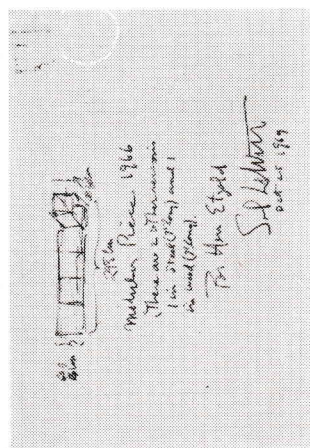 218 cm
Modular Piece 1966
There are 2 other versions
1 in steel (7' long) and 1
in wood (7' long).
For Herr Etzold
Sol LeWitt
Oct 25 1969